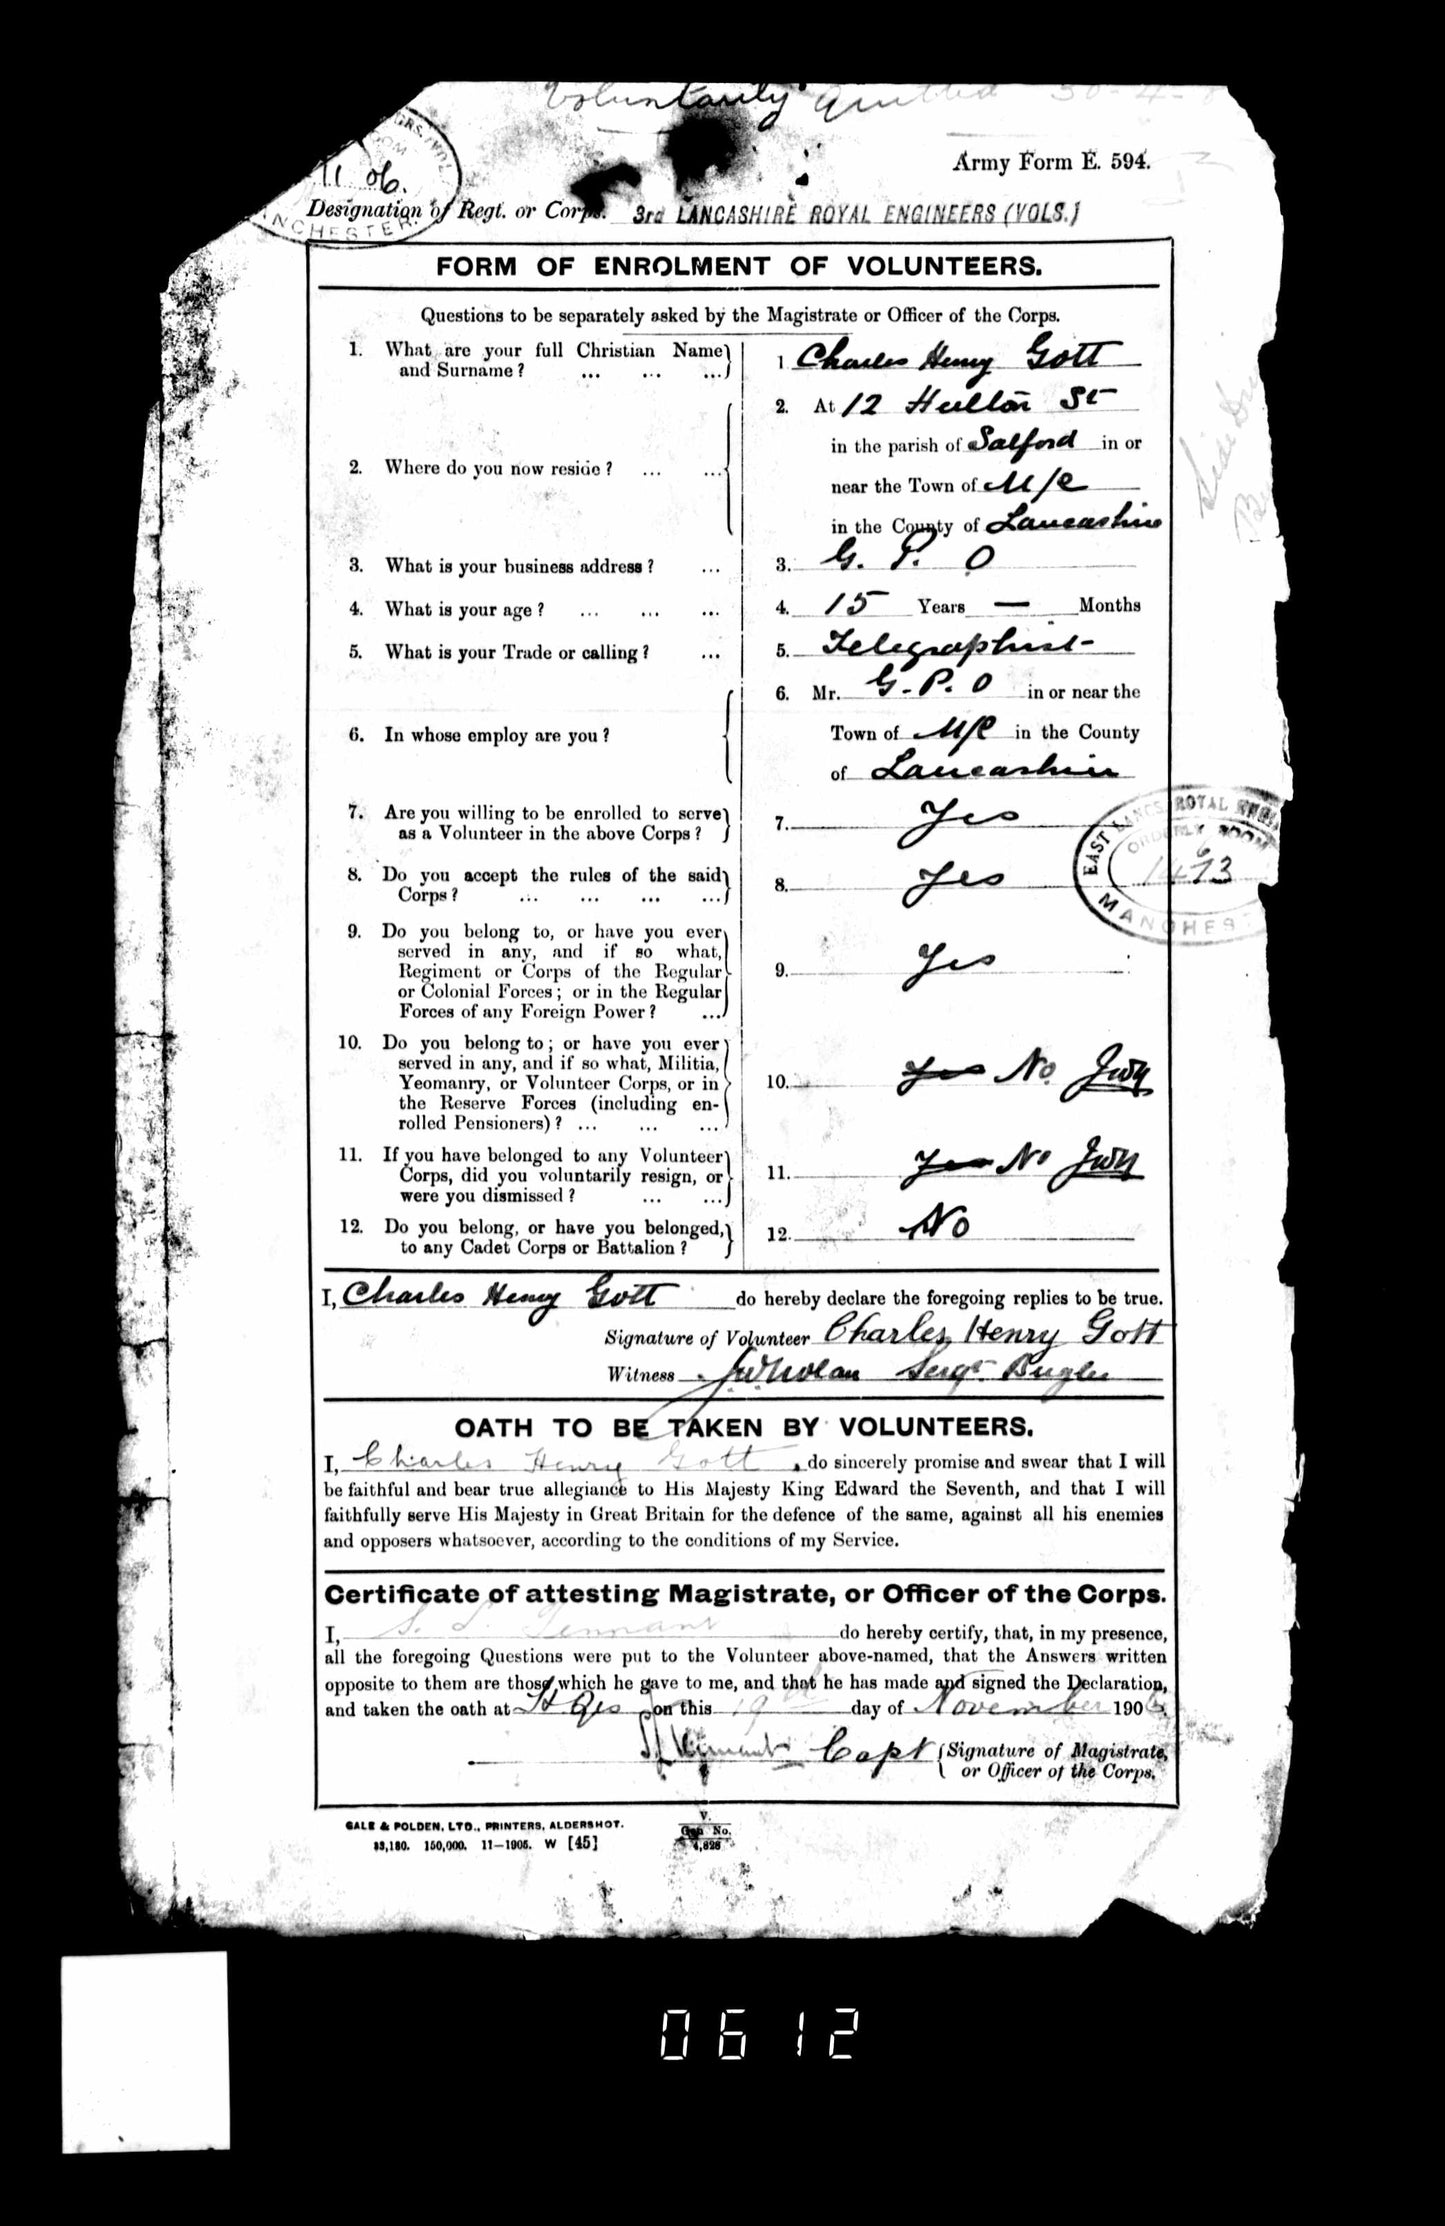 Voluntarily quitted 30-4-
Army Form E. 594.
11 06.
Designation of Regt. or Corps. 3rd LANCASHIRE ROYAL ENGINEERS (VOLS.)
FORM OF ENROLMENT OF VOLUNTEERS.
Questions to be separately asked by the Magistrate or Officer of the Corps.
1. What are your full Christian Name and Surname? ... ... ...
1 Charles Henry Gott
2. Where do you now reside? ... ...
2. At 12 Hulton St
in the parish of Salford in or
near the Town of M/c
in the County of Lancashire
3. What is your business address? ...
3. G. P. O
4. What is your age? ... ... ...
4. 15 Years — Months
5. What is your Trade or calling? ...
5. Telegraphist
6. In whose employ are you?
6. Mr. G. P. O in or near the
Town of M/c in the County
of Lancashire
7. Are you willing to be enrolled to serve
as a Volunteer in the above Corps?
7. Yes
8. Do you accept the rules of the said
Corps? ... ... ... ...
8. Yes
9. Do you belong to, or have you ever
served in any, and if so what,
Regiment or Corps of the Regular
or Colonial Forces; or in the Regular
Forces of any Foreign Power? ...
9. Yes
10. Do you belong to; or have you ever
served in any, and if so what, Militia,
Yeomanry, or Volunteer Corps, or in
the Reserve Forces (including en-
rolled Pensioners)? ... ... ...
10. Yes No JWN
11. If you have belonged to any Volunteer
Corps, did you voluntarily resign, or
were you dismissed? ... ...
11. Yes No JWN
12. Do you belong, or have you belonged,
to any Cadet Corps or Battalion?
12. No
EAST LANCS ROYAL ENGRS
ORDERLY ROOM
6
1473
MANCHEST
I, Charles Henry Gott do hereby declare the foregoing replies to be true.
Signature of Volunteer Charles Henry Gott
Witness J.W. Nolan Sergt. Bugler
OATH TO BE TAKEN BY VOLUNTEERS.
I, Charles Henry Gott, do sincerely promise and swear that I will
be faithful and bear true allegiance to His Majesty King Edward the Seventh, and that I will
faithfully serve His Majesty in Great Britain for the defence of the same, against all his enemies
and opposers whatsoever, according to the conditions of my Service.
Certificate of attesting Magistrate, or Officer of the Corps.
I, S. L. Tennant do hereby certify, that, in my presence,
all the foregoing Questions were put to the Volunteer above-named, that the Answers written
opposite to them are those which he gave to me, and that he has made and signed the Declaration,
and taken the oath at Hd Qrs on this 19th day of November 1906.
S L Tennant Capt (Signature of Magistrate,
or Officer of the Corps.
GALE & POLDEN, LTD., PRINTERS, ALDERSHOT.
150,000. 11—1905. W [45]
0612